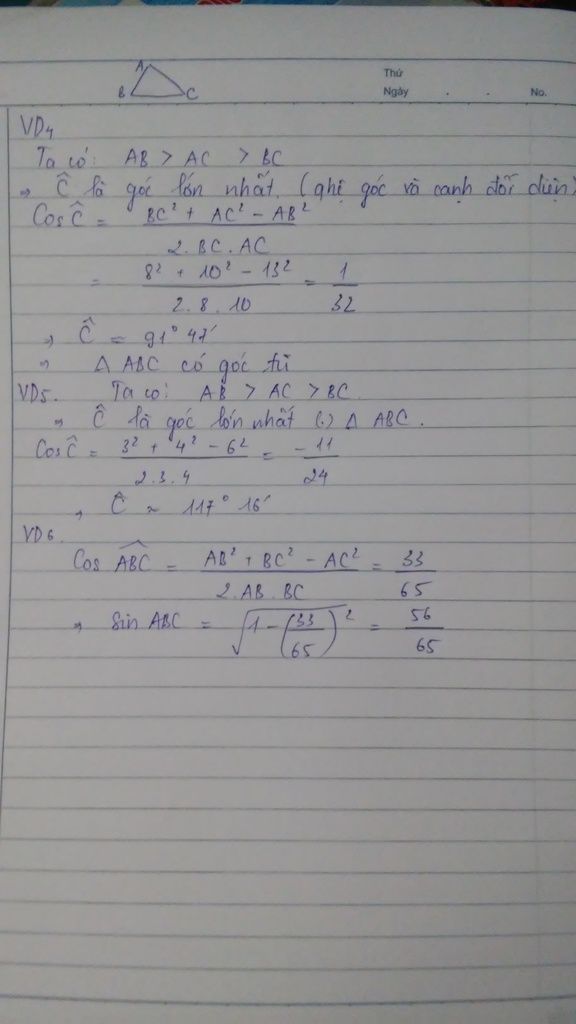 A
B C
Thứ
Ngày . . No.
VD4
Ta có: AB > AC > BC
⇒ Ĉ là góc lớn nhất. (qhệ góc và cạnh đối diện)
Cos Ĉ = (BC² + AC² - AB²) / (2.BC.AC)
= (8² + 10² - 13²) / (2.8.10) = 1/32
⇒ Ĉ = 91° 47'
⇒ Δ ABC có góc tù
VD5. Ta có: AB > AC > BC.
⇒ Ĉ là góc lớn nhất (.) Δ ABC.
Cos Ĉ = (3² + 4² - 6²) / (2.3.4) = -11/24
⇒ Ĉ ≈ 117° 16'
VD6.
Cos ABC = (AB² + BC² - AC²) / (2.AB.BC) = 33/65
⇒ Sin ABC = √(1 - (33/65)²) = 56/65